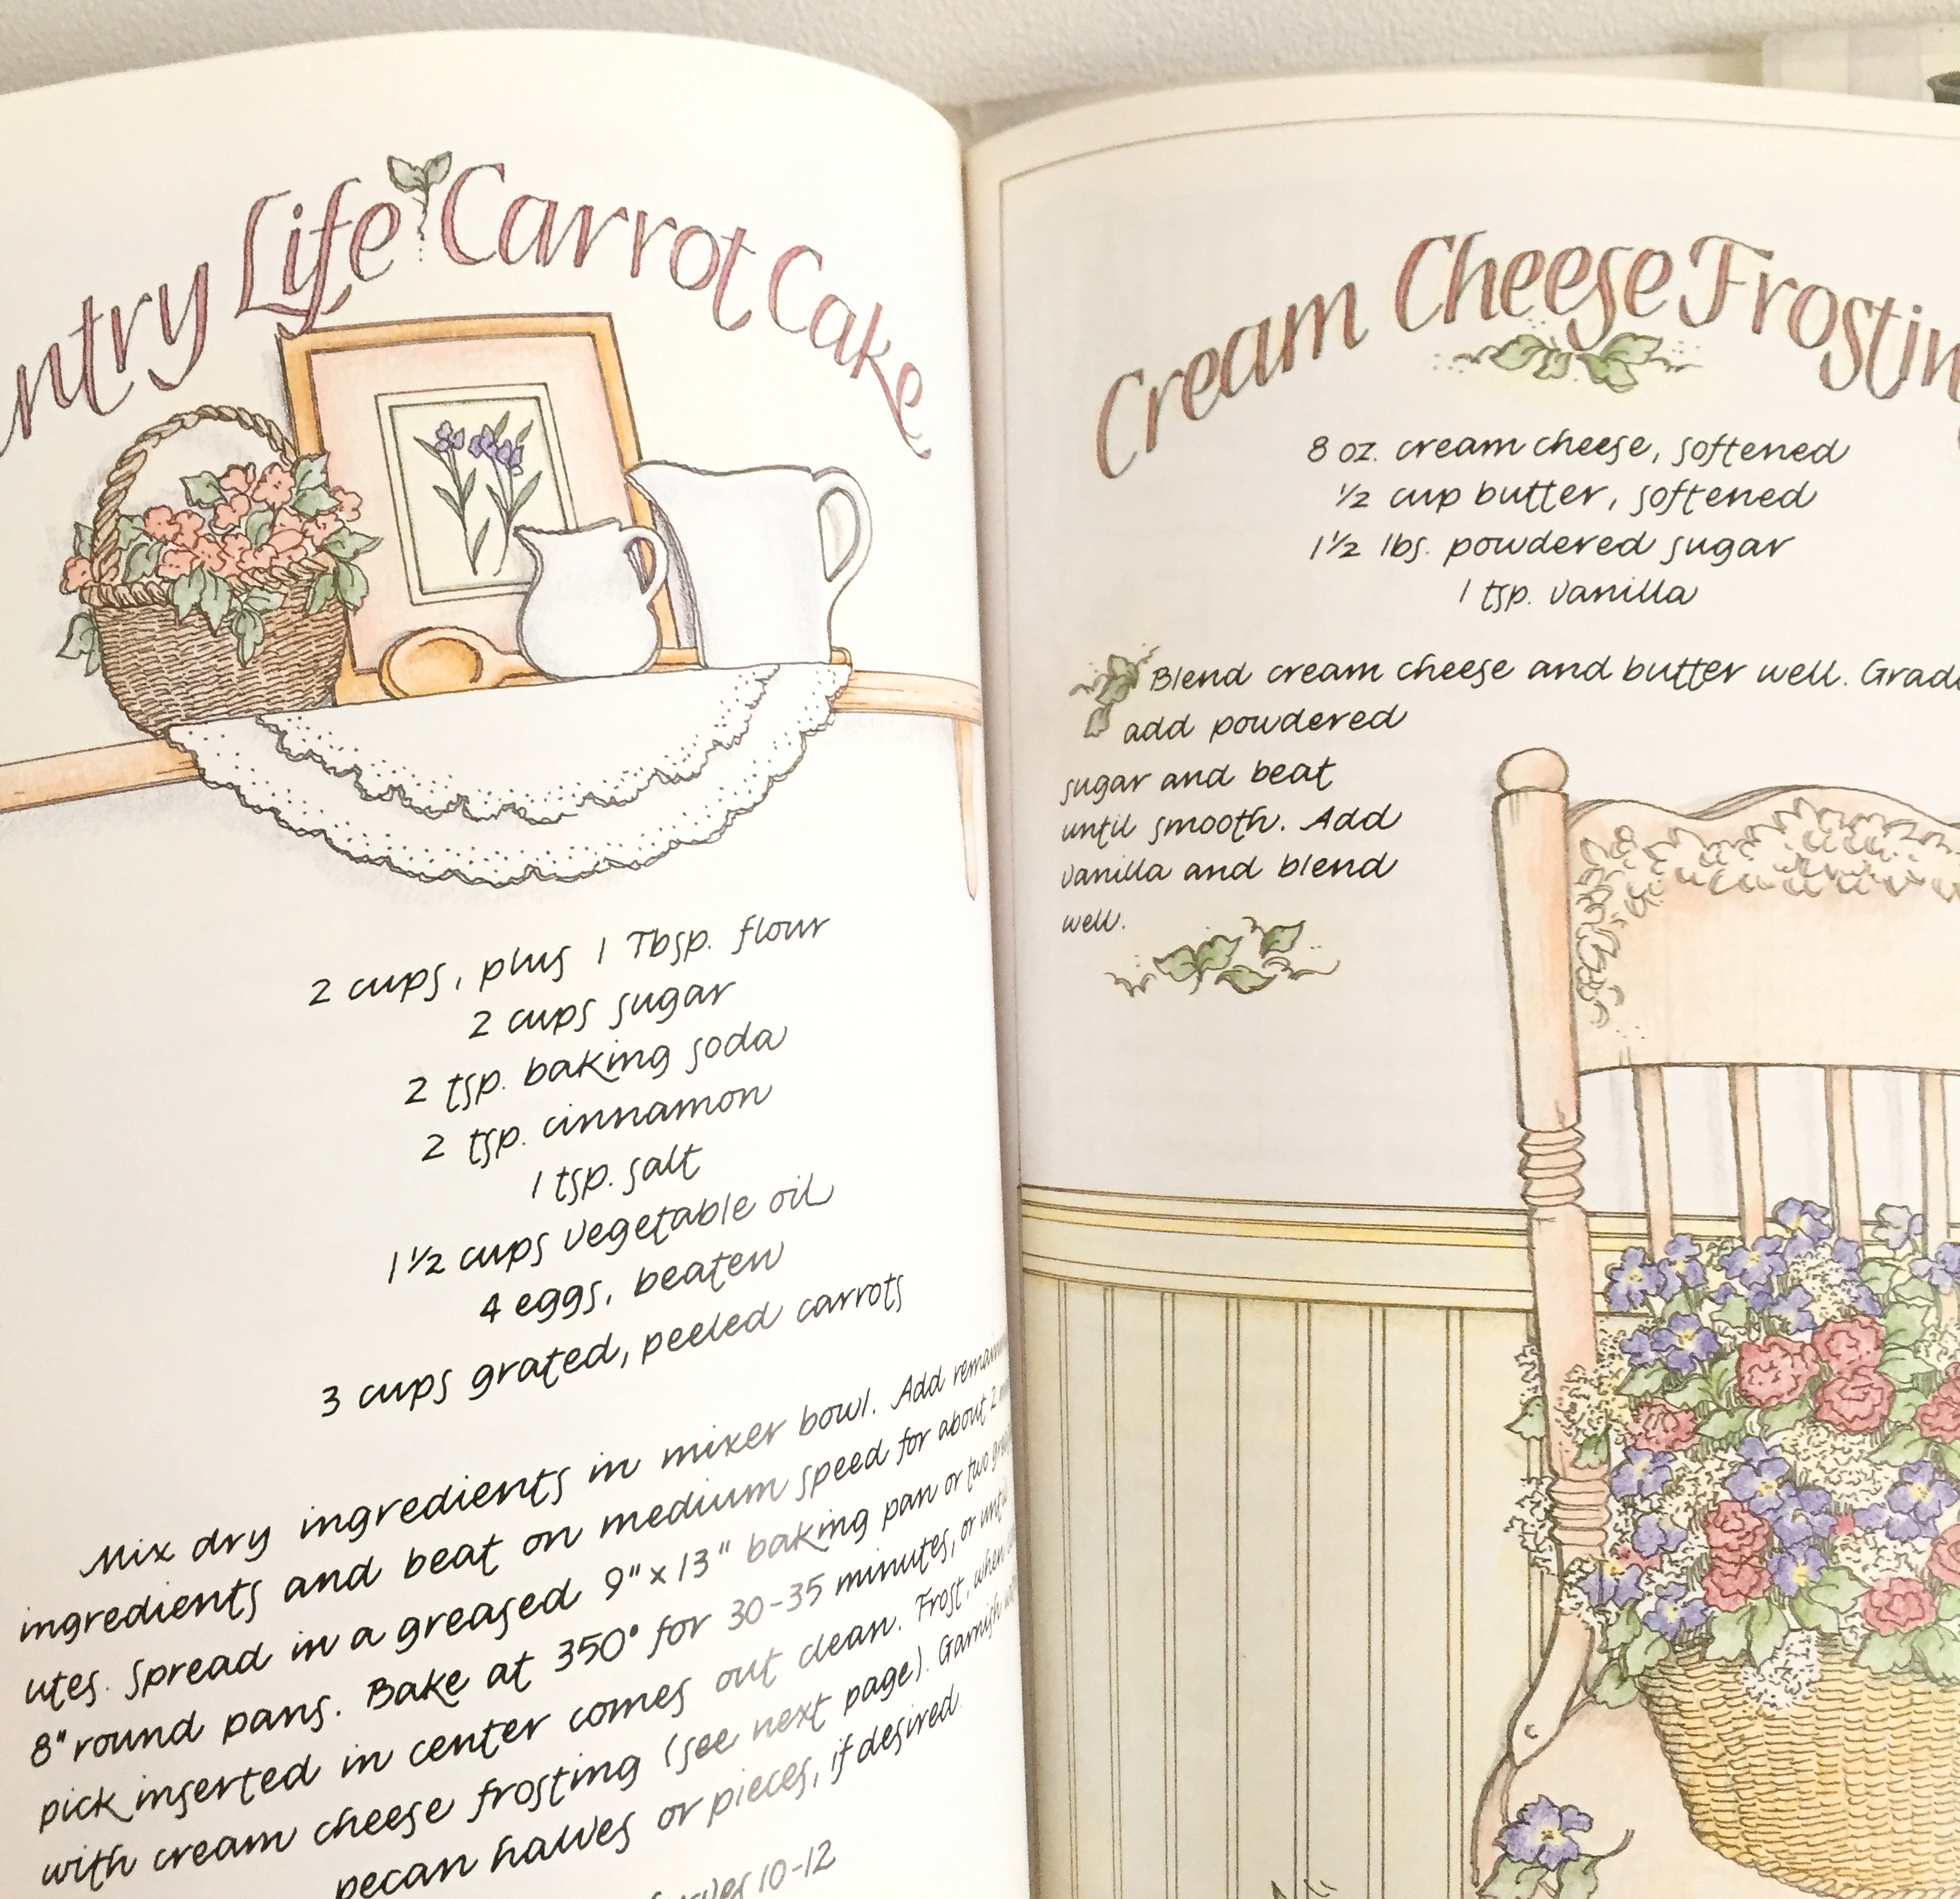 Life Carrot Cake
2 cups, plus 1 Tbsp. flour
2 cups sugar
2 tsp. baking soda
2 tsp. cinnamon
1 tsp. salt
1 1/2 cups vegetable oil
4 eggs, beaten
3 cups grated, peeled carrots
Mix dry ingredients in mixer bowl. Add
ingredients and beat on medium speed for about 2
utes. Spread in a greased 9" x 13" baking pan or two
8" round pans. Bake at 350° for 30-35 minutes, or
pick inserted in center comes out clean. Frost, when
with cream cheese frosting (see next page). Garnish
pecan halves or pieces, if desired.
10-12
Cream Cheese
8 oz. cream cheese, softened
1/2 cup butter, softened
1 1/2 lbs. powdered sugar
1 tsp. vanilla
Blend cream cheese and butter well.
add powdered
sugar and beat
until smooth. Add
vanilla and blend
well.